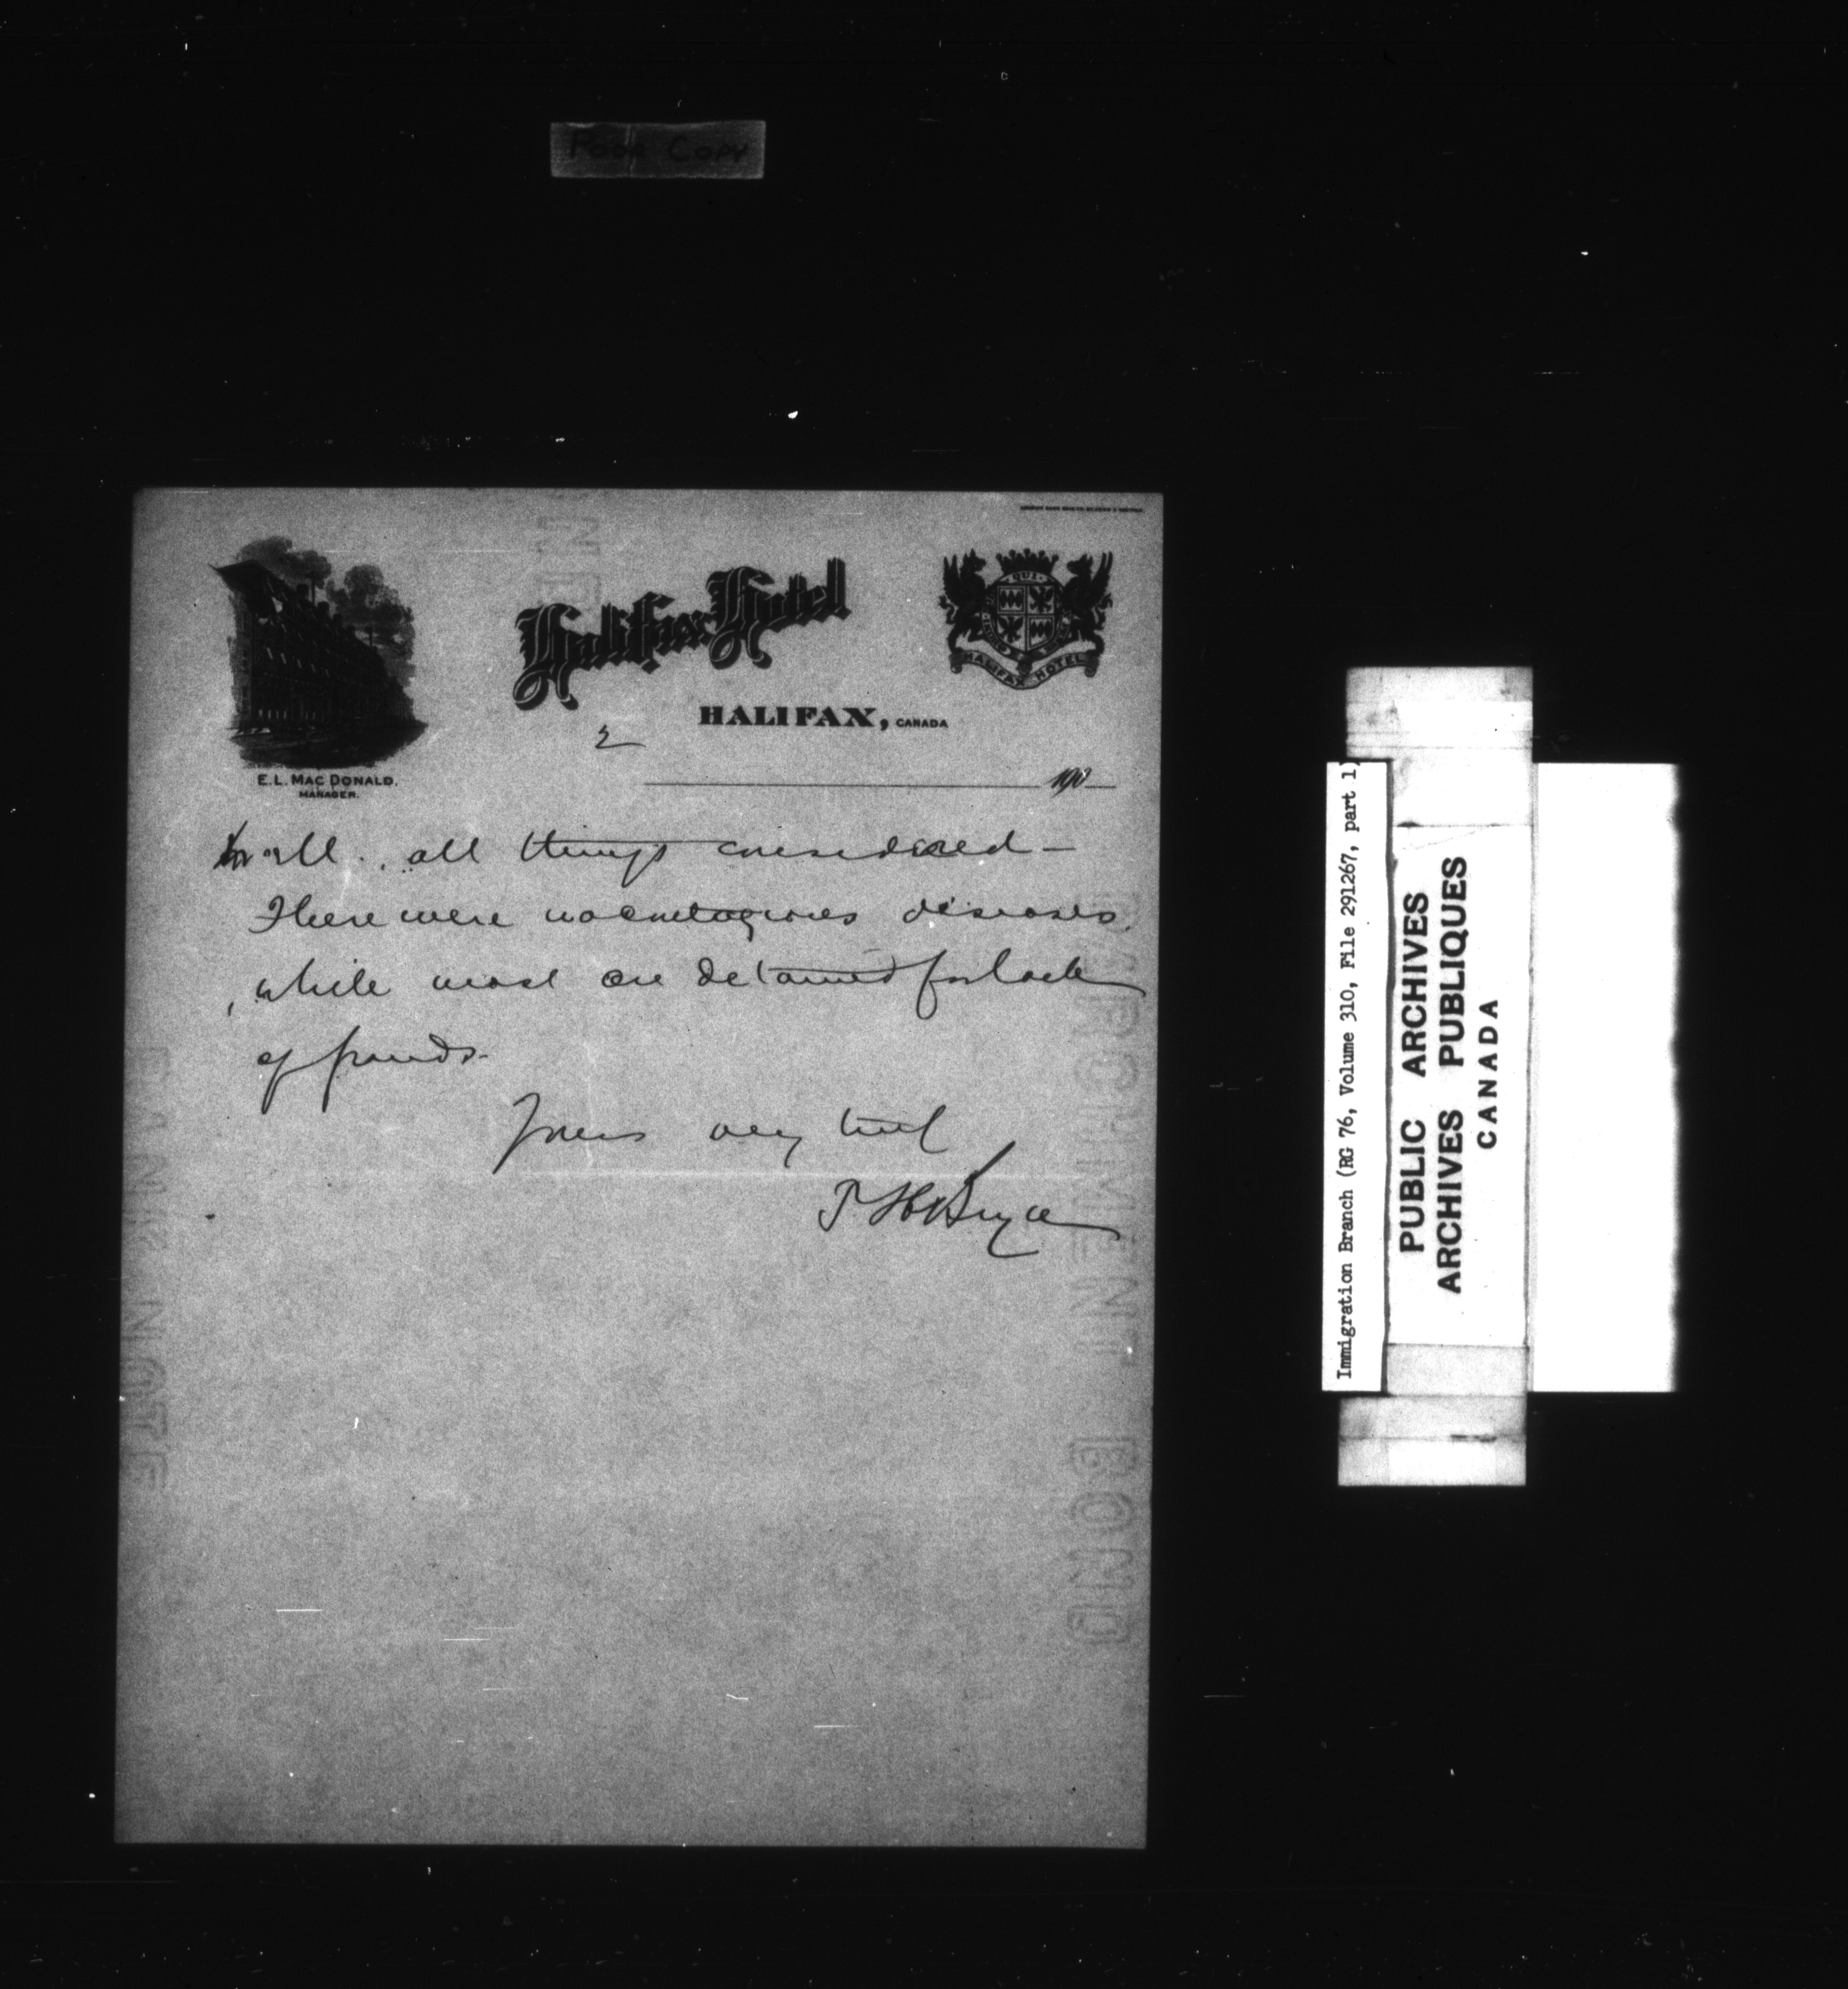 Poor Copy
Halifax Hotel
QUI
HALIFAX HOTEL
HALIFAX, CANADA
2
E. L. MAC DONALD.
MANAGER.
190
well, all things considered —
There were no contagious diseases,
while most are detained for lack
of funds.
Yours very truly
P H Bryce
PARCHMENT BOND
Immigration Branch (RG 76, Volume 310, File 291267, part 1)
PUBLIC ARCHIVES
ARCHIVES PUBLIQUES
CANADA